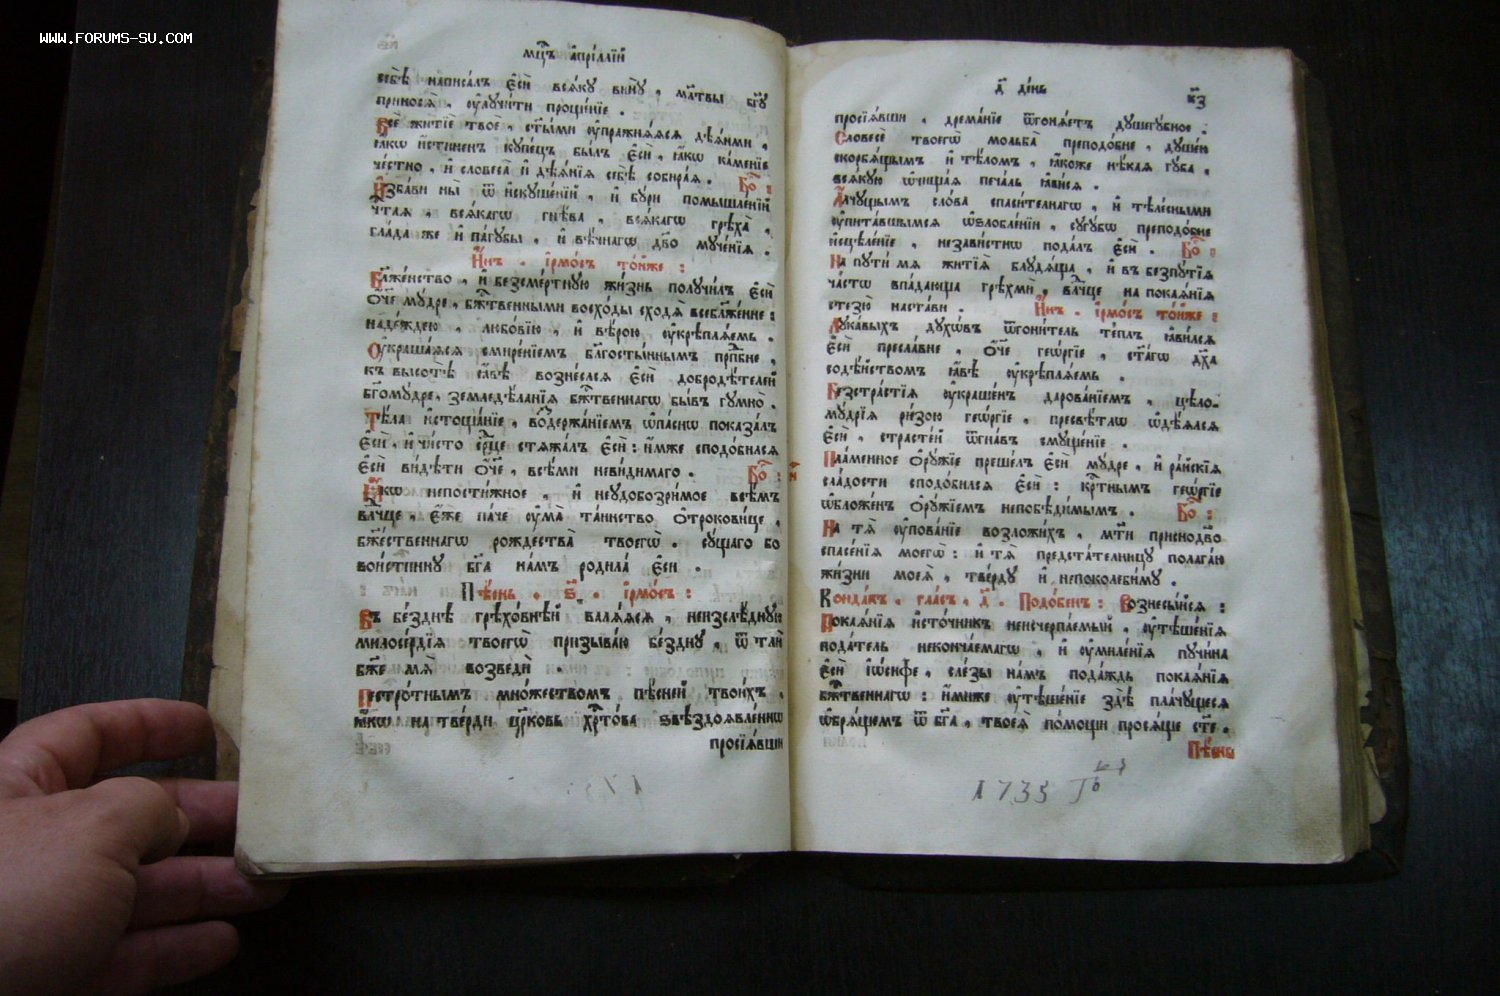 WWW.FORUMS-SU.COM
мц҃ъ а҆прі́ллїй
себѣ̀ написа́лъ є҆сѝ всѧ́ку винꙋ̀, мл҃твы бг҃ꙋ
приносѧ̀, ᲂу҆лꙋчи́ти проще́нїе.
Всѐ житїѐ твоѐ, ст҃ы́ми ᲂу҆пражнѧ́ѧсѧ дѣѧ́ньми,
ꙗ҆́кѡ и҆́стиненъ кꙋпе́цъ бы́лъ є҆сѝ, ꙗ҆́кѡ ка́менїе
че́стно, и҆ словеса̀ и҆ дѣѧ́нїѧ себѣ̀ собира́ѧ. Бо҃:
И҆зба́ви ны̀ ѿ и҆скꙋше́нїй, и҆ бꙋ́ри помышле́нїй
чта́ѧ, всѧ́кагѡ гнѣ́ва, всѧ́кагѡ грѣха̀,
гла́да же и҆ па́гꙋбы, и҆ вѣ́чнагѡ дв҃о мꙋче́нїѧ.
и҆́нъ. і҆рмо́съ то́йже:
Бл҃же́нство, и҆ безсме́ртнꙋю жи́знь полꙋчи́лъ є҆сѝ
ѻ҆́ч҃е мꙋ́дре, бж҃твенными восхо́ды сходѧ̀ всебл҃же́нне:
наде́ждею, любо́вїю, и҆ вѣ́рою ᲂу҆крѣплѧ́емь.
Оу҆краша́ѧсѧ смире́нїемъ бл҃госты́ннымъ прп҃бне,
къ высотѣ̀ ꙗ҆́вѣ возне́слсѧ є҆сѝ добродѣ́телей
бг҃омꙋ́дре, земледѣ́ланїѧ бж҃твеннагѡ бы́въ гꙋмно̀.
Тѣ́ла и҆стоща́нїе, воз̾держа́нїемъ ѡ҆па́снѡ показа́лъ
є҆сѝ, и҆ чи́сто ср҃це стѧжа́лъ є҆сѝ: и҆́мже сподо́билсѧ
є҆сѝ ви́дѣти ѻ҆́ч҃е, всѣ́ми неви́димаго. Бо҃:
Ꙗ҆́кѡ непости́жное, и҆ неꙋдобозри́мое всѣ́мъ
влⷣчце, є҆́же па́че ᲂу҆ма̀ та́инство ѻ҆трокови́це,
бж҃е́ственнагѡ рождества̀ твоегѡ̀. сꙋ́щаго бо
вои́стиннꙋ бг҃а на́мъ родила̀ є҆сѝ.
Пѣ́снь. ѕ҃. і҆рмо́съ:
Въ бе́зднѣ грѣхо́внѣй валѧ́ѧсѧ, неизслѣ́днꙋю
милосе́рдїѧ твоегѡ̀ призыва́ю бе́зднꙋ, ѿ тлѝ
бж҃е мѧ̀ возведѝ.
Пестро́тнымъ мно́жествомъ пѣ́сней твои́хъ,
ꙗ҆́кѡ на тве́рди цр҃ковь хрⷭ҇то́ва ѕвѣздоѧвле́ннѡ
просїѧ́вши
д҃ де́нь
к҃з
просїѧ́вши, дрема́нїе ѿгонѧ́етъ дꙋшегꙋ́бное.
Словесѐ твоегѡ̀ мольба̀ преподо́бне, дꙋше́ю
скорбѧ́щымъ и҆ тѣ́ломъ, ꙗ҆́коже нѣ́каѧ гꙋ́ба,
всѧ́кꙋю ѡ҆чища́ѧ печа́ль ꙗ҆ви́сѧ.
А҆́лчꙋщымъ сло́ва спаси́телнагѡ, и҆ тѣле́сными
ᲂу҆пита́вшымсѧ ѡ҆ѕлобле́нїи, сꙋгꙋ́бѡ преподо́бне
и҆сцѣле́нїе, незави́стнѡ пода́лъ є҆сѝ. Бо҃:
На пꙋтѝ мѧ житїѧ̀ блꙋдѧ́ща, и҆ въ безпꙋ́тїѧ
ча́стѡ впа́дающа грѣхмѝ, влⷣчце на покаѧ́нїѧ
стезю̀ наста́ви. и҆́нъ. і҆рмо́съ то́йже:
Лꙋка́выхъ дꙋхѡ́въ ѿгони́тель те́плъ ꙗ҆ви́лсѧ
є҆сѝ пресла́вне, ѻ҆́ч҃е геѡ́ргїе, ст҃а́гѡ дх҃а
содѣ́йствомъ ꙗ҆́вѣ ᲂу҆крѣплѧ́емь.
Безстра́стїѧ ᲂу҆краше́нъ дарова́нїемъ, цѣло-
мꙋ́дрїѧ ри́зою геѡ́ргїе, пресвѣ́тлѡ ѡ҆дѣ́ѧлсѧ
є҆сѝ, страсте́й ѿгна́въ смꙋще́нїе.
Пла́менное ѻ҆рꙋ́жїе преше́лъ є҆сѝ мꙋ́дре, и҆ ра́йскїѧ
сла́дости сподо́билсѧ є҆сѝ: крⷭ҇тнымъ геѡ́ргїе
ѡ҆бложе́нъ ѻ҆рꙋ́жїемъ непобѣди́мымъ. Бо҃:
На тѧ̀ ᲂу҆пова́нїе возложи́хъ, мт҃и присно дв҃о
спасе́нїѧ моегѡ̀: и҆ тѧ̀ предста́телницꙋ полага́ю
жи́зни моеѧ̀, тве́рдꙋ и҆ непоколеби́мꙋ.
Конда́къ. гла́съ. д҃. Подо́бенъ: Вознесы́йсѧ:
Покаѧ́нїѧ и҆сто́чникъ неисчерпа́емый, ᲂу҆тѣше́нїѧ
пода́тель некончае́магѡ, и҆ ᲂу҆миле́нїѧ пꙋчи́на
є҆сѝ і҆ѡ́сифе, сле́зы на́мъ пода́ждь покаѧ́нїѧ
бж҃твеннагѡ: и҆́миже ᲂу҆тѣше́нїе здѣ̀ пла́чꙋщесѧ
ѡ҆брѧ́щемъ ѿ бг҃а, твоеѧ̀ по́мощи просѧ́ще ст҃е.
Пѣ́снь
1735